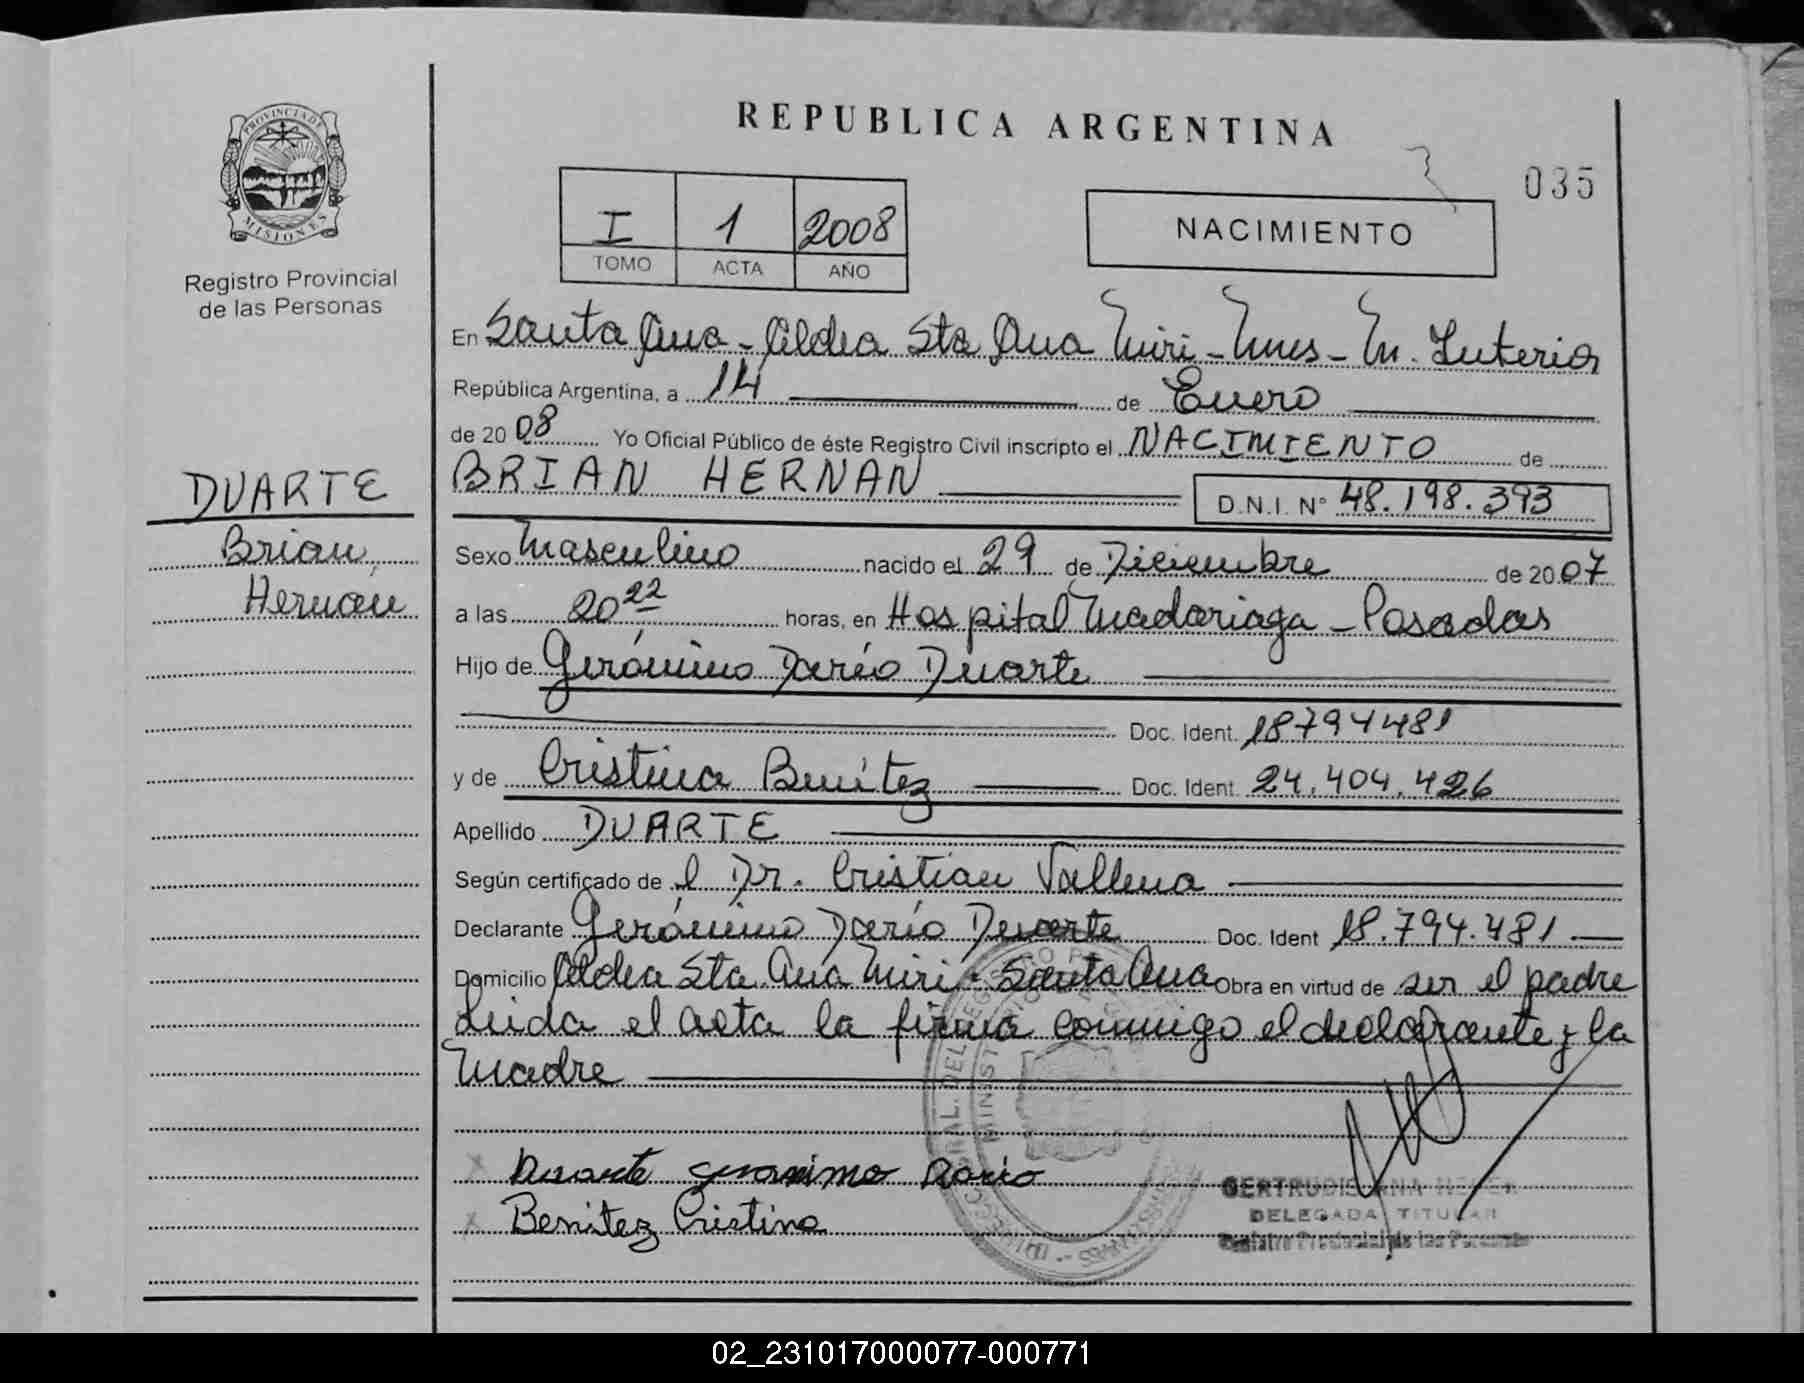 REPUBLICA ARGENTINA
035
PROVINCIA DE MISIONES
Registro Provincial
de las Personas
I 1 2008
TOMO ACTA AÑO
NACIMIENTO
En Santa Ana - Aldea Sta Ana Miri - Mnes - M. Interior
República Argentina, a 14 de Enero
de 2008 Yo Oficial Público de éste Registro Civil inscripto el NACIMIENTO de
BRIAN HERNAN D.N.I. Nº 48.198.393
DUARTE
Brian
Hernan
Sexo Masculino nacido el 29 de Diciembre de 2007
a las 20 22 horas, en Hospital Madariaga - Posadas
Hijo de Gerónimo Darío Duarte
Doc. Ident. 18794481
y de Cristina Benítez Doc. Ident. 24.404.426
Apellido DUARTE
Según certificado de l Dr. Cristian Vallena
Declarante Gerónimo Darío Duarte Doc. Ident 18.794.481
Domicilio Aldea Sta. Ana Miri - Santa Ana Obra en virtud de ser el padre
Leida el acta la firma conmigo el declarante y la
Madre
Duarte Geronimo Dario
Benitez Cristina
GERTRUDIS ANA
DELEGADA TITULAR
Registro Provincial de las Personas
02_231017000077-000771